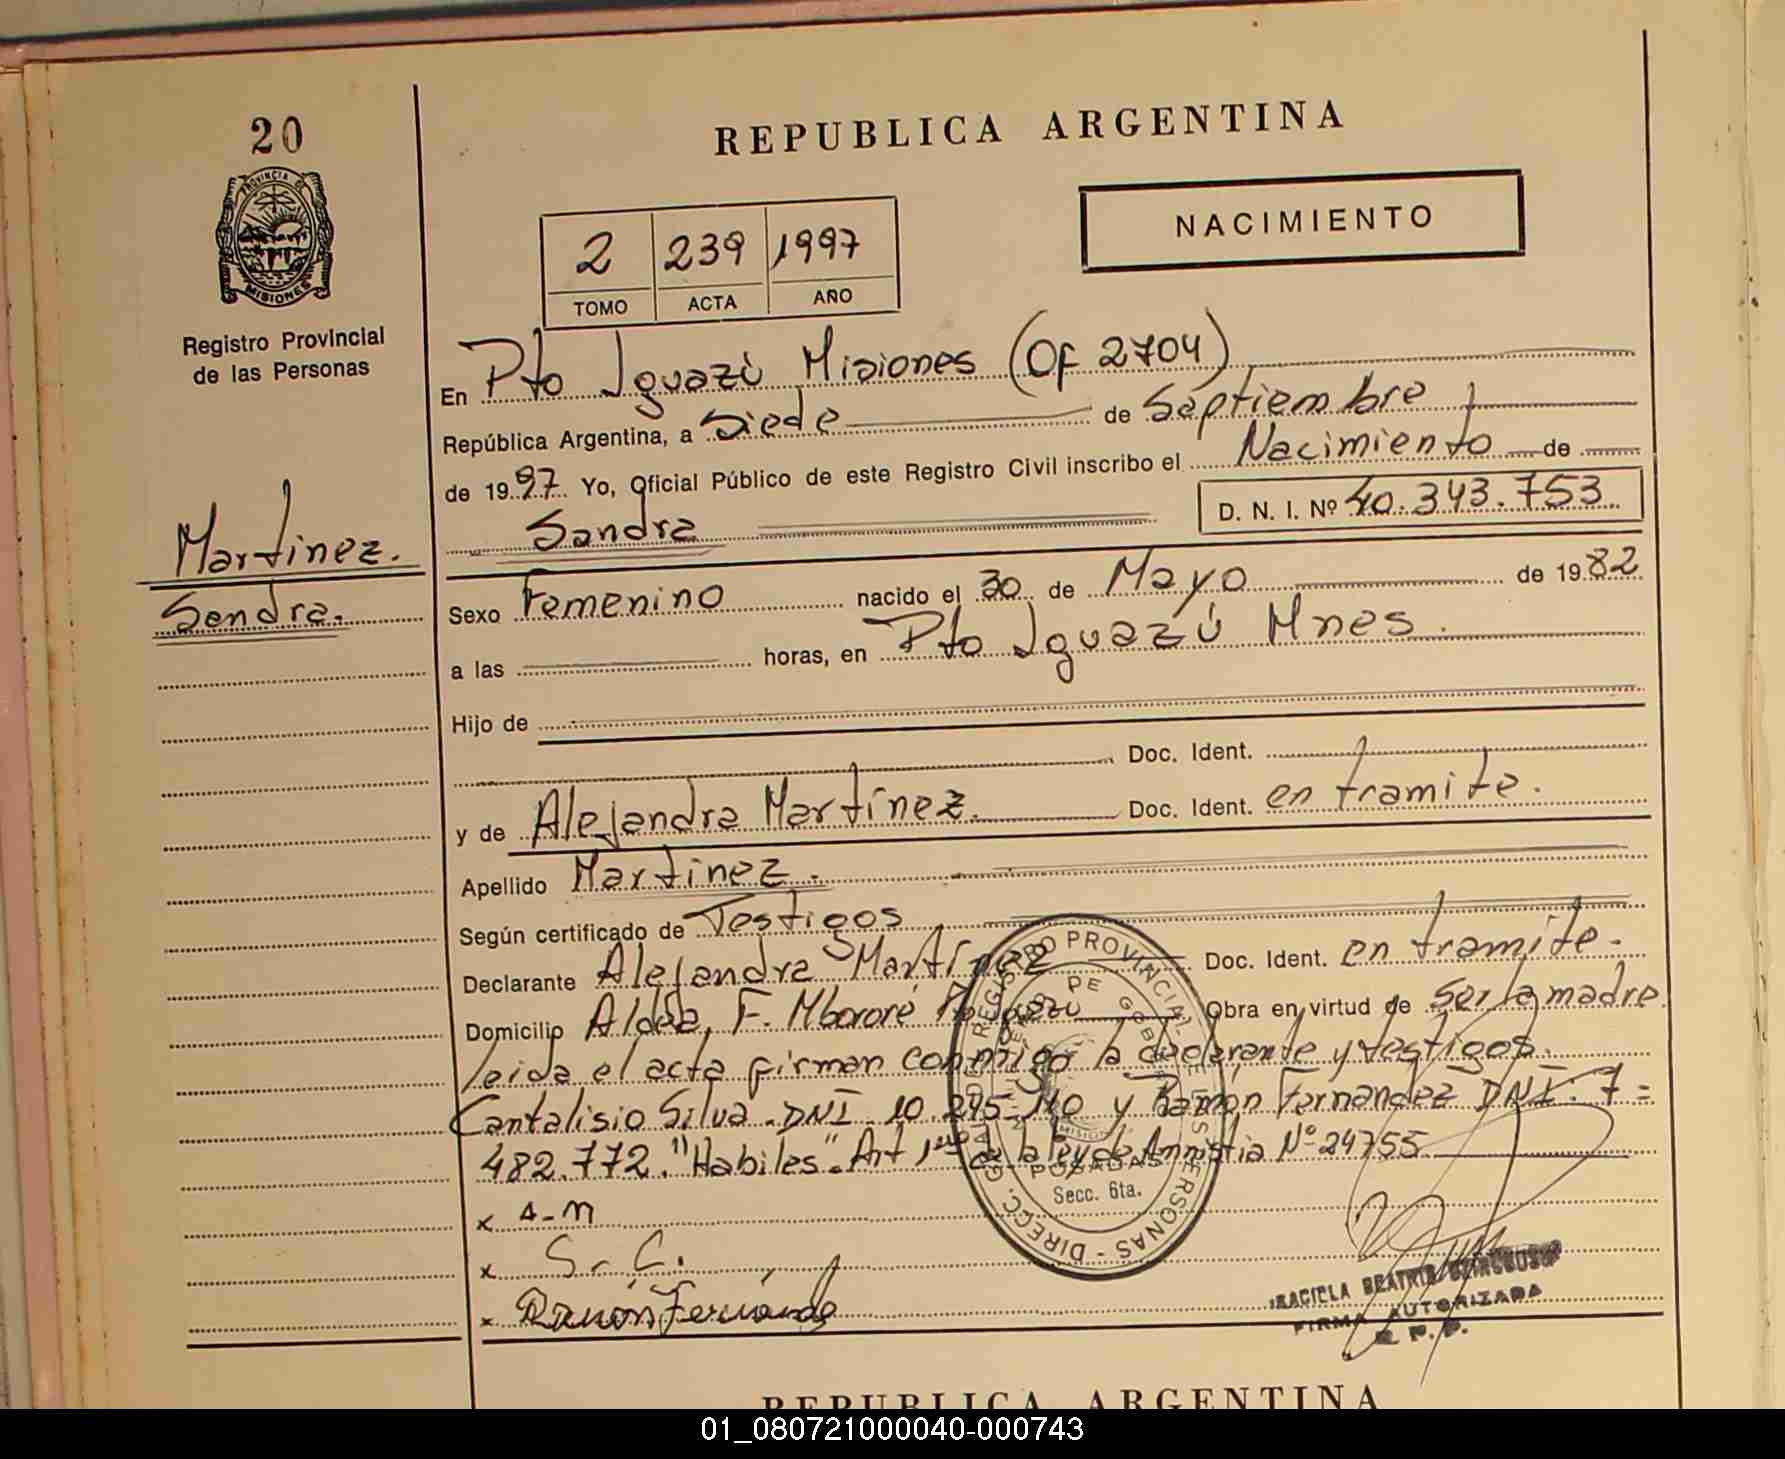 20
PROVINCIA DE
MISIONES
Registro Provincial
de las Personas
Martinez.
Sandra.
REPUBLICA ARGENTINA
NACIMIENTO
2 239 1997
TOMO ACTA AÑO
En Pto Iguazú Misiones (Of 2704)
República Argentina, a Siede de Septiembre
de 1997 Yo, Oficial Público de este Registro Civil inscribo el Nacimiento de
Sandra D. N. I. Nº 40.343.753.
Sexo Femenino nacido el 30 de Mayo de 1982
a las horas, en Pto Iguazú Mnes.
Hijo de
Doc. Ident.
y de Alejandra Martínez. Doc. Ident. en tramite.
Apellido Martinez.
Según certificado de Testigos
Declarante Alejandra Martínez Doc. Ident. en tramite.
Domicilio Aldea, F. Mbororé Pto Iguazu Obra en virtud de Ser la madre
leida el acta firman conmigo la declarante y testigos.
Cantalisio Silva. DNI. 10.295.110 y Ramón Fernandez DNI: 7=
482.772. "Habiles". Art 1ro de la ley de Amnistia Nº 24755
x A-M
x S. C.
x Ramón Fernánde
DIRECC. GRAL. DE REGISTRO PROVINCIAL DE LAS PERSONAS
POSADAS
Secc. 6ta.
GRACIELA BEATRIZ
FIRMA AUTORIZADA
R. P. P.
REPUBLICA ARGENTINA
01_080721000040-000743